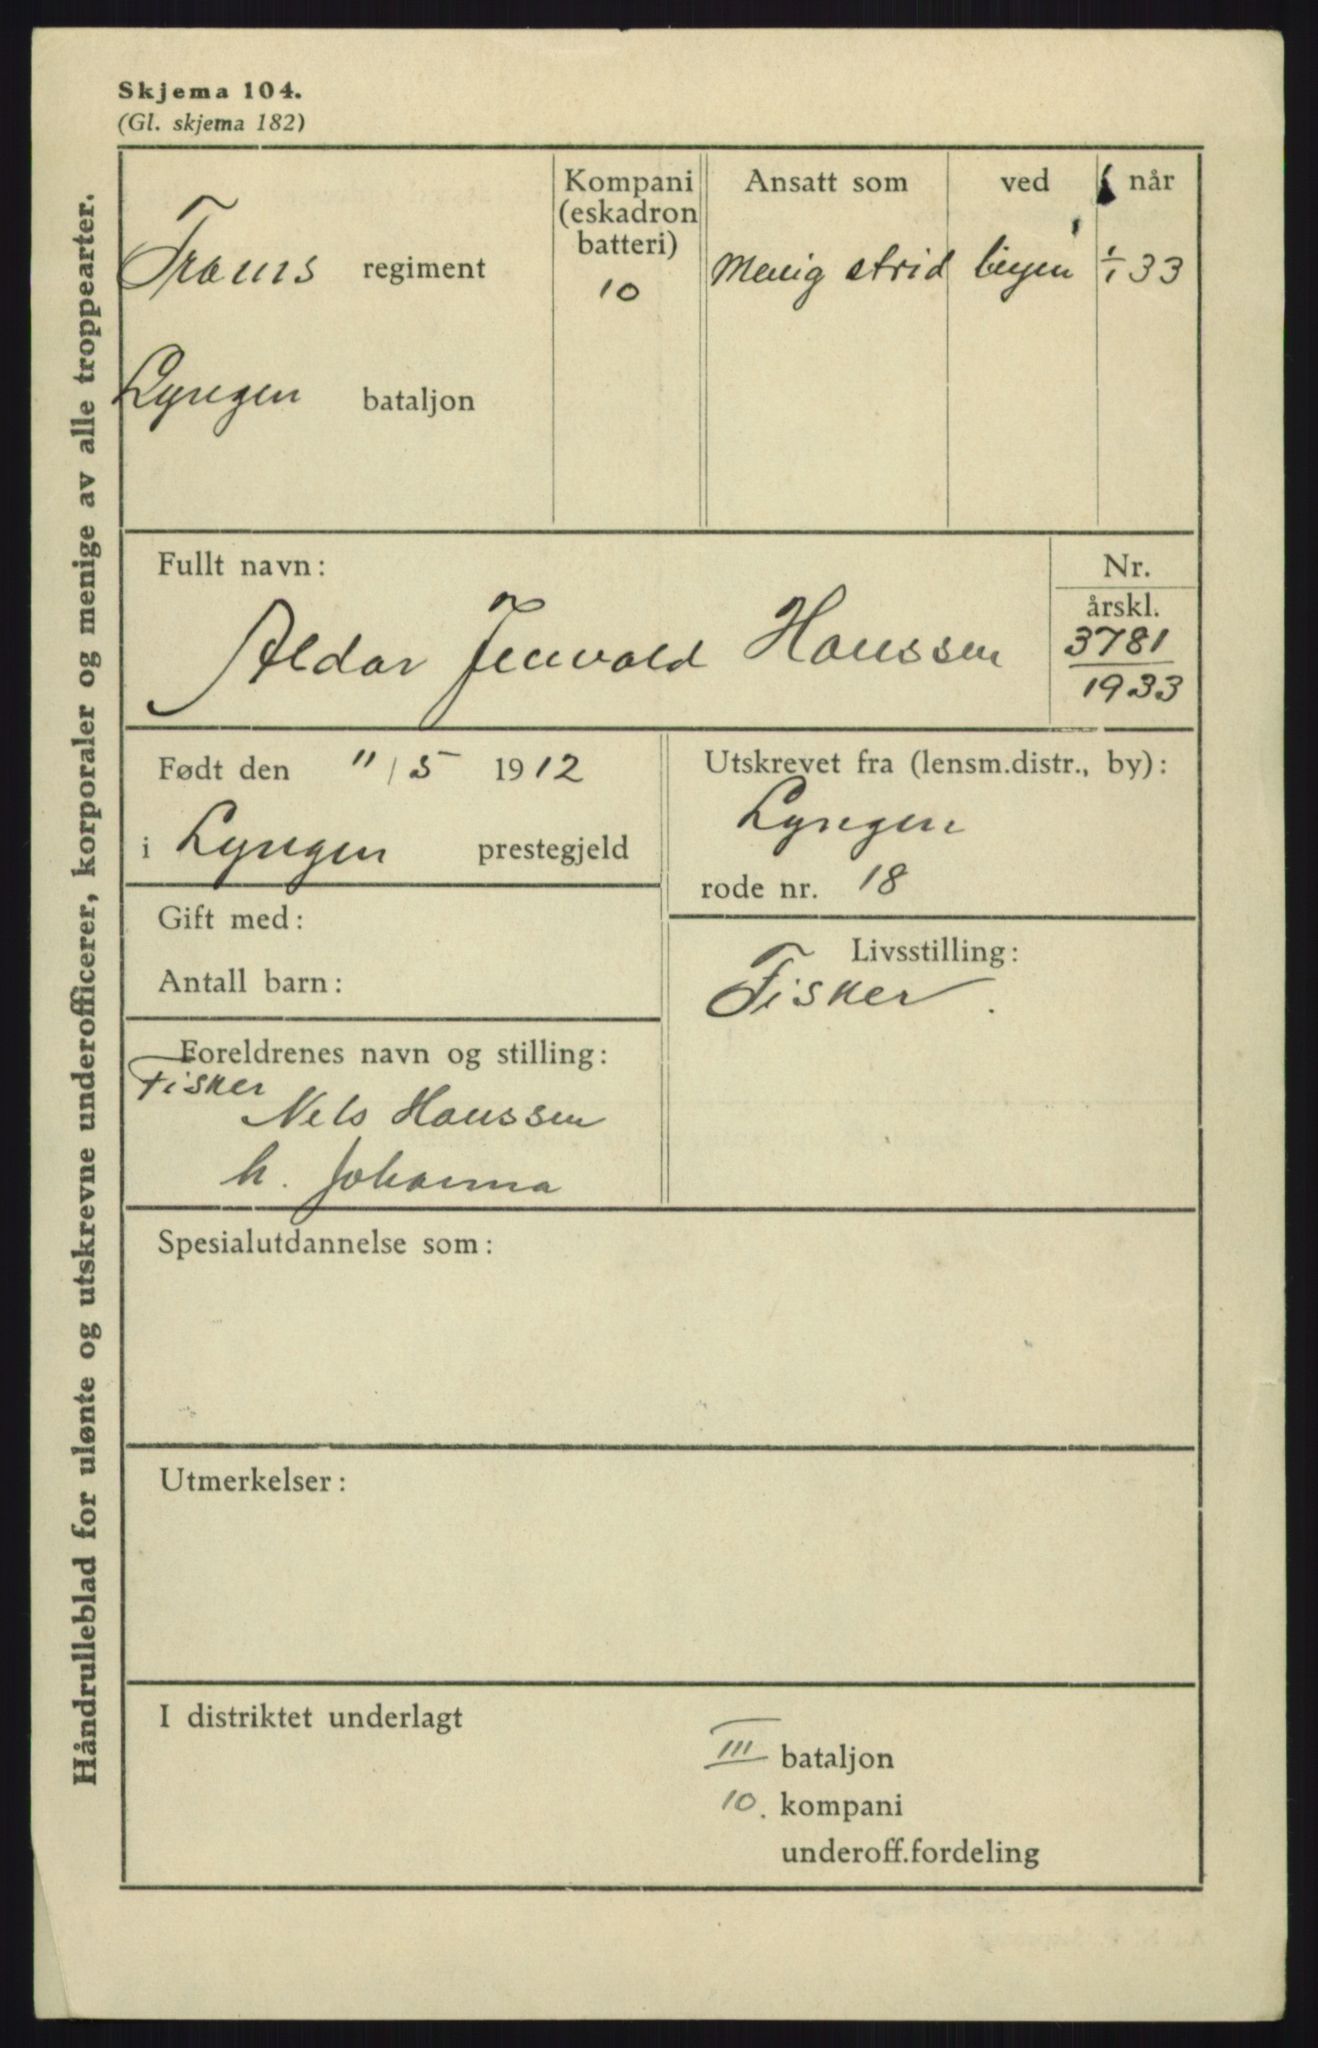 Skjema 104.
(Gl. skjema 182)
Håndrulleblad for ulønte og utskrevne underofficerer, korporaler og menige av alle troppearter.
Troms regiment
Lyngen bataljon
Kompani
(eskadron
batteri)
10
Ansatt som
Menig strid
ved
linjen
når
1/1 33
Fullt navn:
Aldar Jenvald Hanssen
Nr.
årskl.
3781
1933
Født den 11/5 1912
i Lyngen prestegjeld
Utskrevet fra (lensm.distr., by):
Lyngen
rode nr. 18
Gift med:
Antall barn:
Livsstilling:
Fisker.
Foreldrenes navn og stilling:
Fisker
Nels Hanssen
h. Johanna
Spesialutdannelse som:
Utmerkelser:
I distriktet underlagt
III bataljon
10. kompani
underoff.fordeling